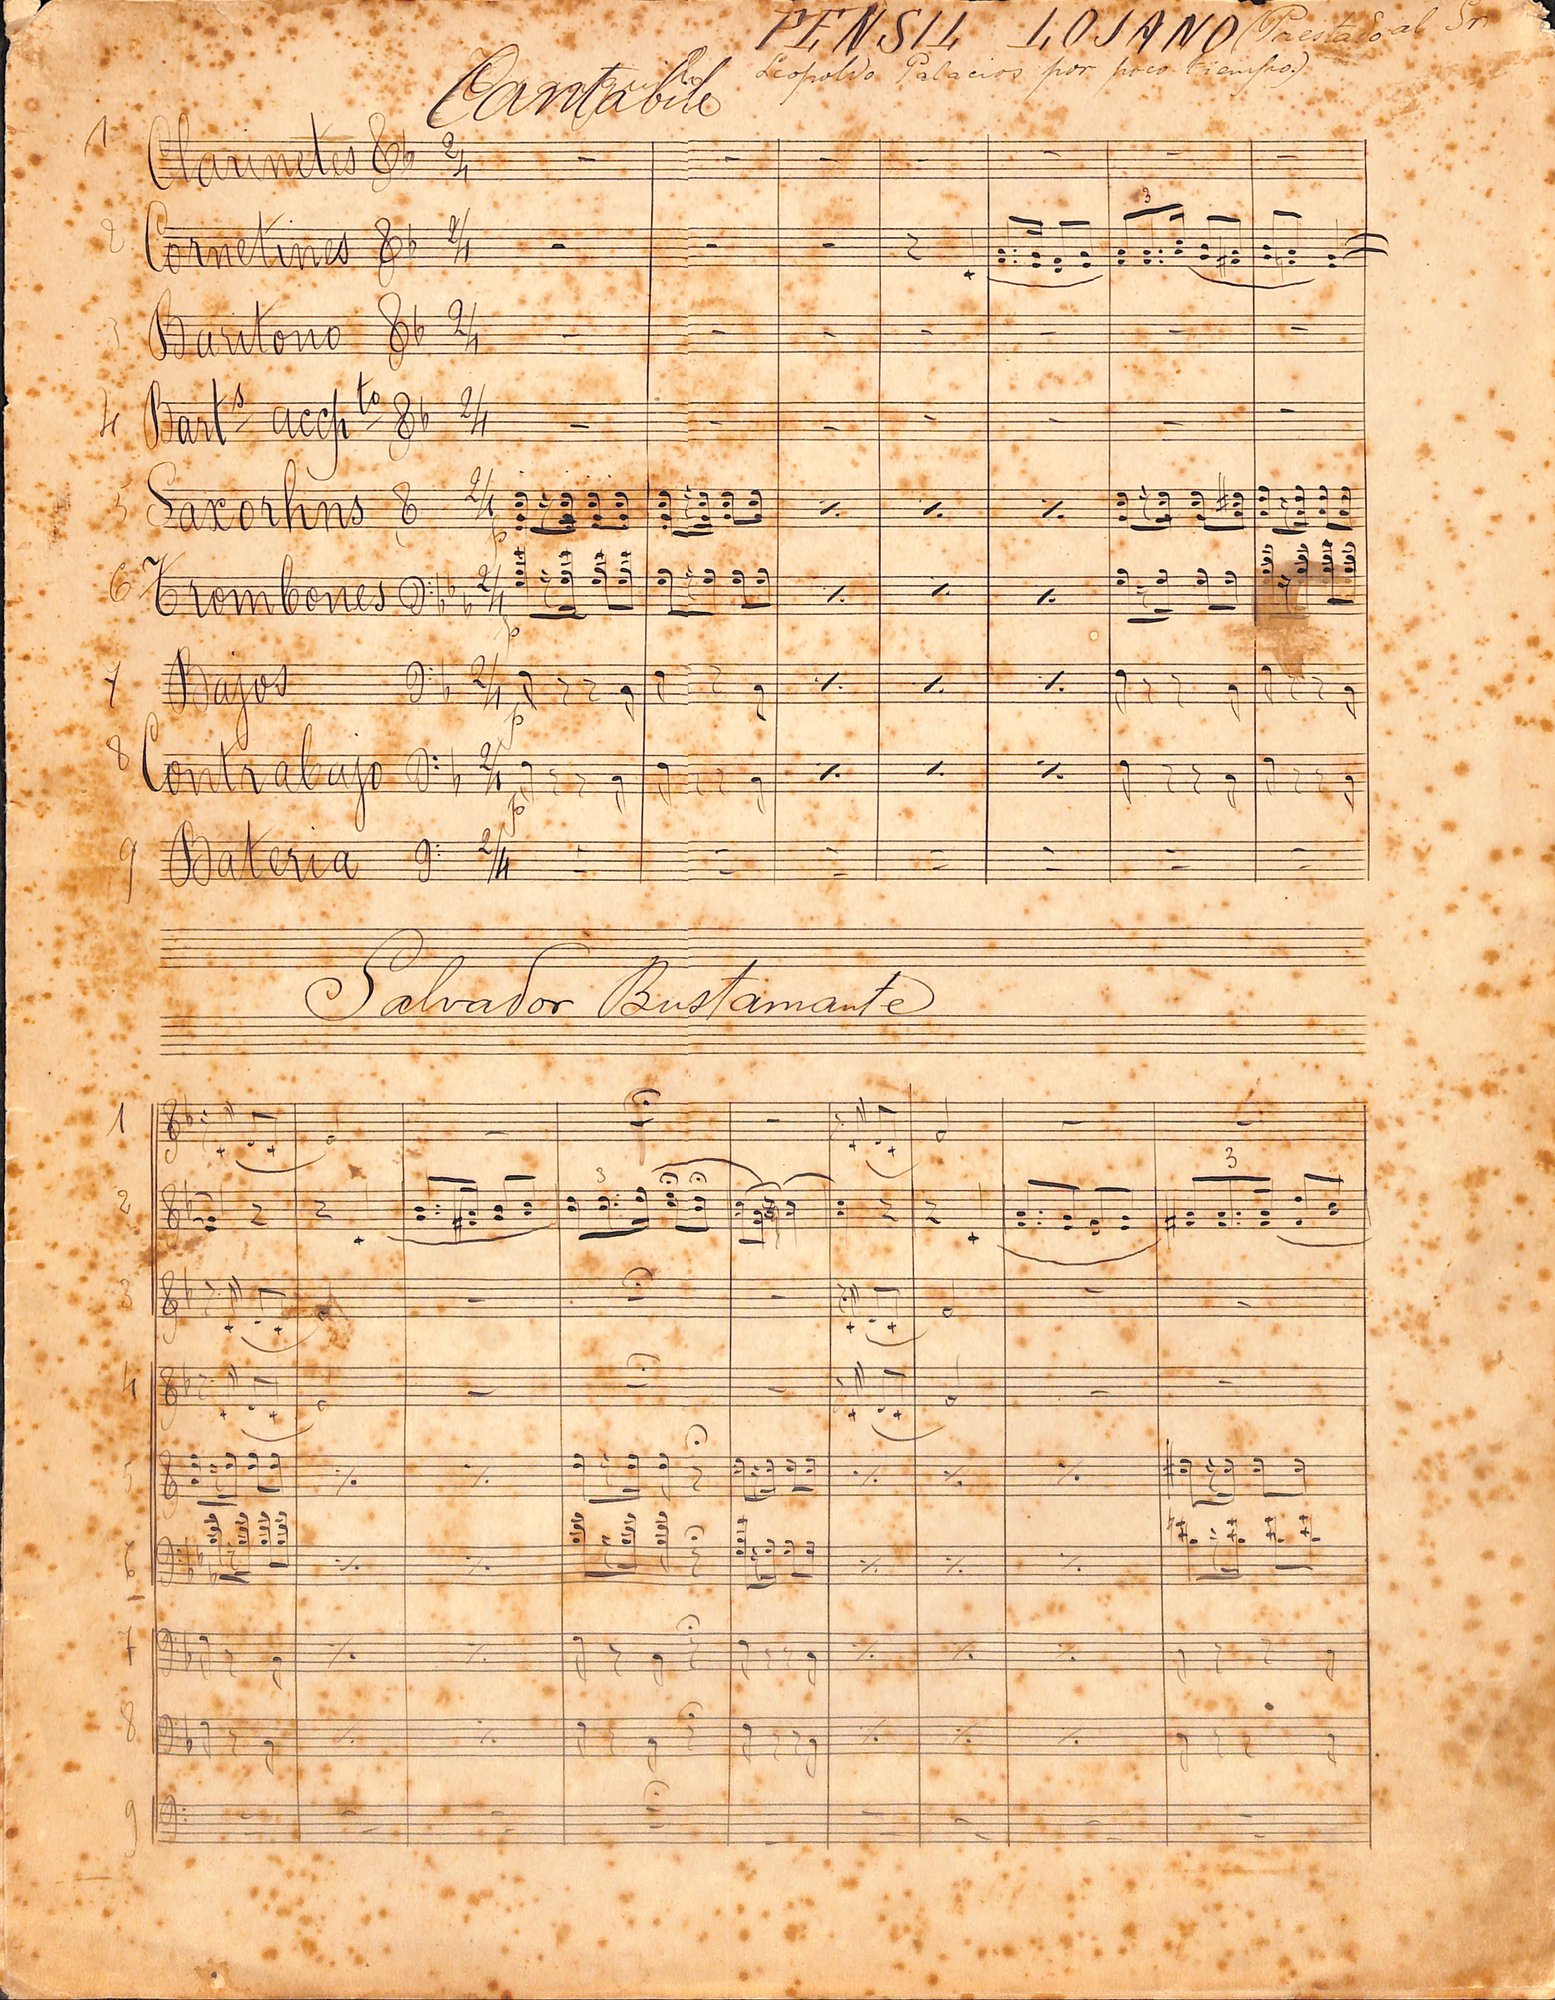 PENSIL LOJANO (Prestado al Sr
Leopoldo Palacios por poco tiempo)
Cantabile
1 Clarinetes 2/4
2 Cornetines 2/4
3 Baritono 2/4
4 Barts accpto 2/4
5 Saxorhns 2/4
p
6 Trombones 2/4
p
7 Bajos 2/4
p
8 Contrabajo 2/4
p
9 Bateria 2/4
3
Salvador Bustamante
1
2 3 3
3
4
5
6
7
8
9